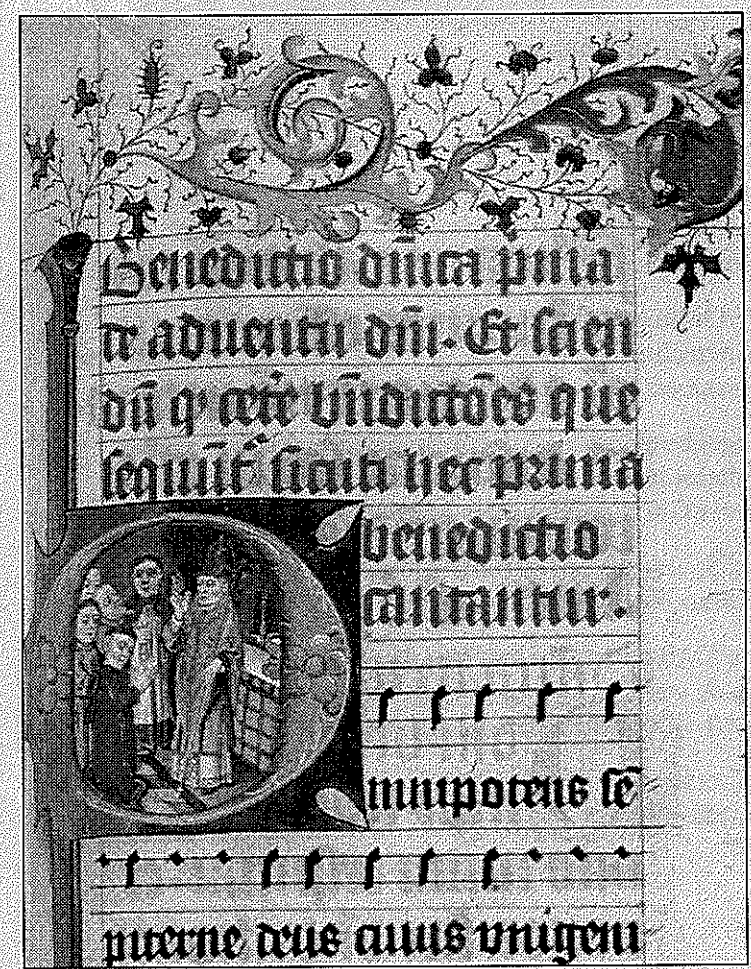 Benedictio dn̄ica p̄ma
de aduentu dn̄i. Et scien
dū q' cete̅ bn̄dictōes que
sequūt̄ sicuti hec prima
benedictio
cantantur.
Omnipotens sē
piterne deus cuius vnigeni